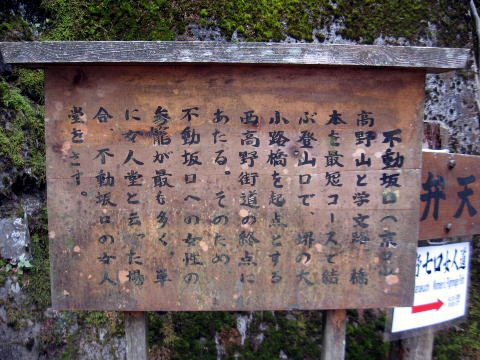 不動坂口(京口)
高野山と学文路、橋
本を最短コースで結
ぶ登山口で、堺の大
小路橋を起点とする
西高野街道の終点に
あたる。そのため、
不動坂口への女性の
参籠が最も多く、単
に女人堂と云った場
合、不動坂口の女人
堂をさす。
弁天
七口女人道